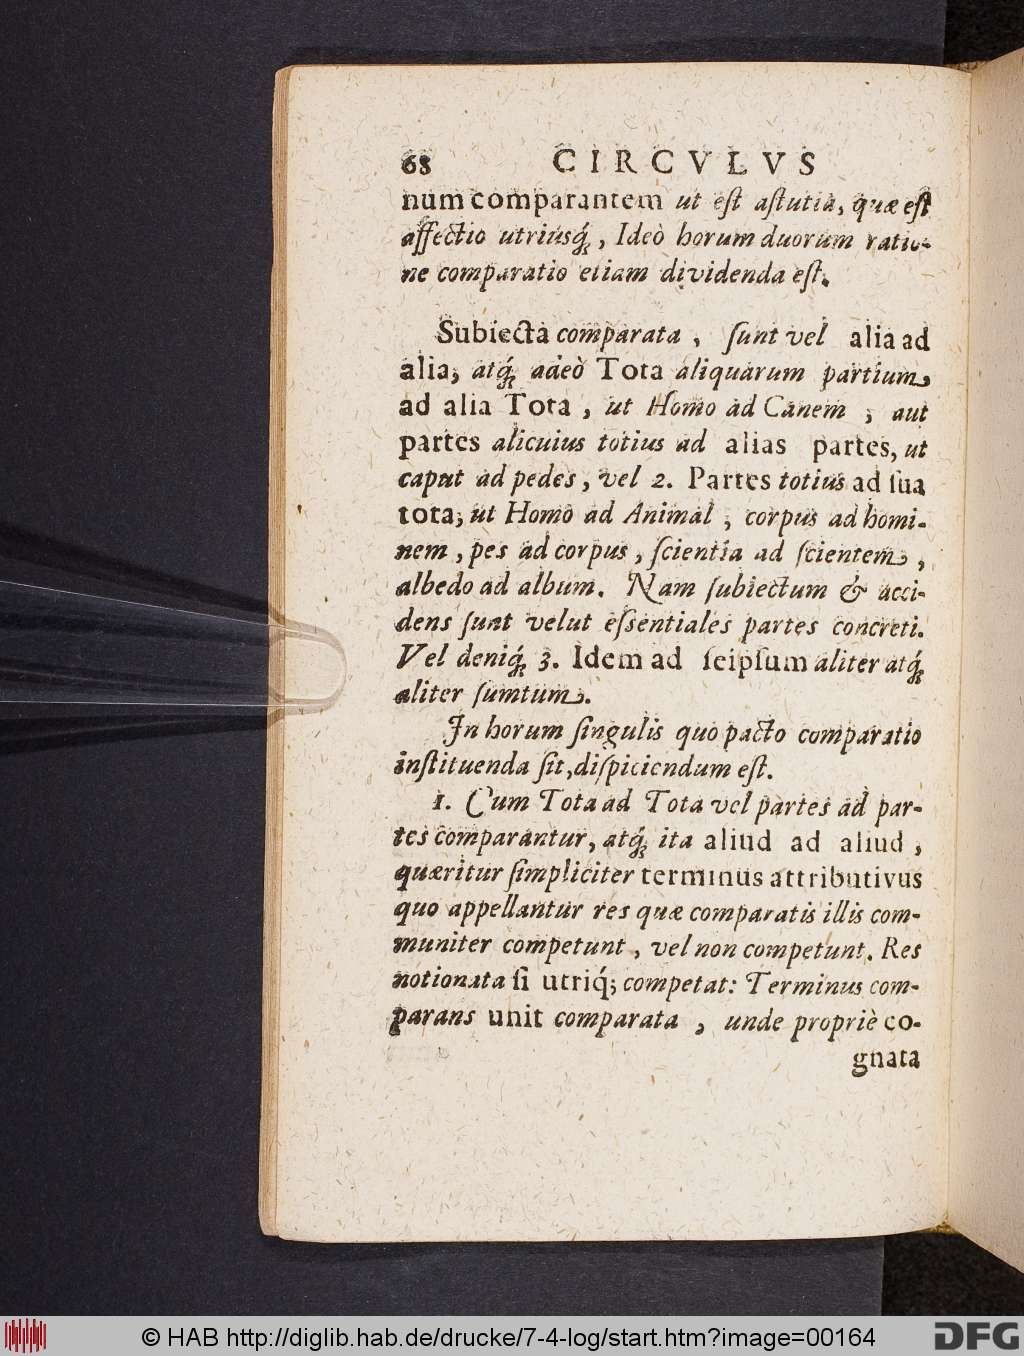 68 CIRCVLVS
num comparantem ut eſt aſtutia, quæ eſt
affectio utriusq́;, Ideò horum duorum ratio-
ne comparatio etiam dividenda eſt.
Subiecta comparata, ſunt vel alia ad
alia, atq́; adeò Tota aliquarum partium,
ad alia Tota, ut Homo ad Canem, aut
partes alicuius totius ad alias partes, ut
caput ad pedes, vel 2. Partes totius ad ſua
tota; ut Homo ad Animal, corpus ad homi-
nem, pes ad corpus, ſcientia ad ſcientem,
albedo ad album. Nam ſubiectum & acci-
dens ſunt velut eſsentiales partes concreti.
Vel deniq́; 3. Idem ad ſeipſum aliter atq́;
aliter ſumtum.
In horum ſingulis quo pacto comparatio
inſtituenda ſit, diſpiciendum eſt.
1. Cum Tota ad Tota vel partes ad par-
tes comparantur, atq́; ita aliud ad aliud,
quæritur ſimpliciter terminus attributivus
quo appellantur res quæ comparatis illis com-
muniter competunt, vel non competunt. Res
notionata ſi utriq́; competat: Terminus com-
parans unit comparata, unde propriè co-
gnata
© HAB http://diglib.hab.de/drucke/7-4-log/start.htm?image=00164
DFG